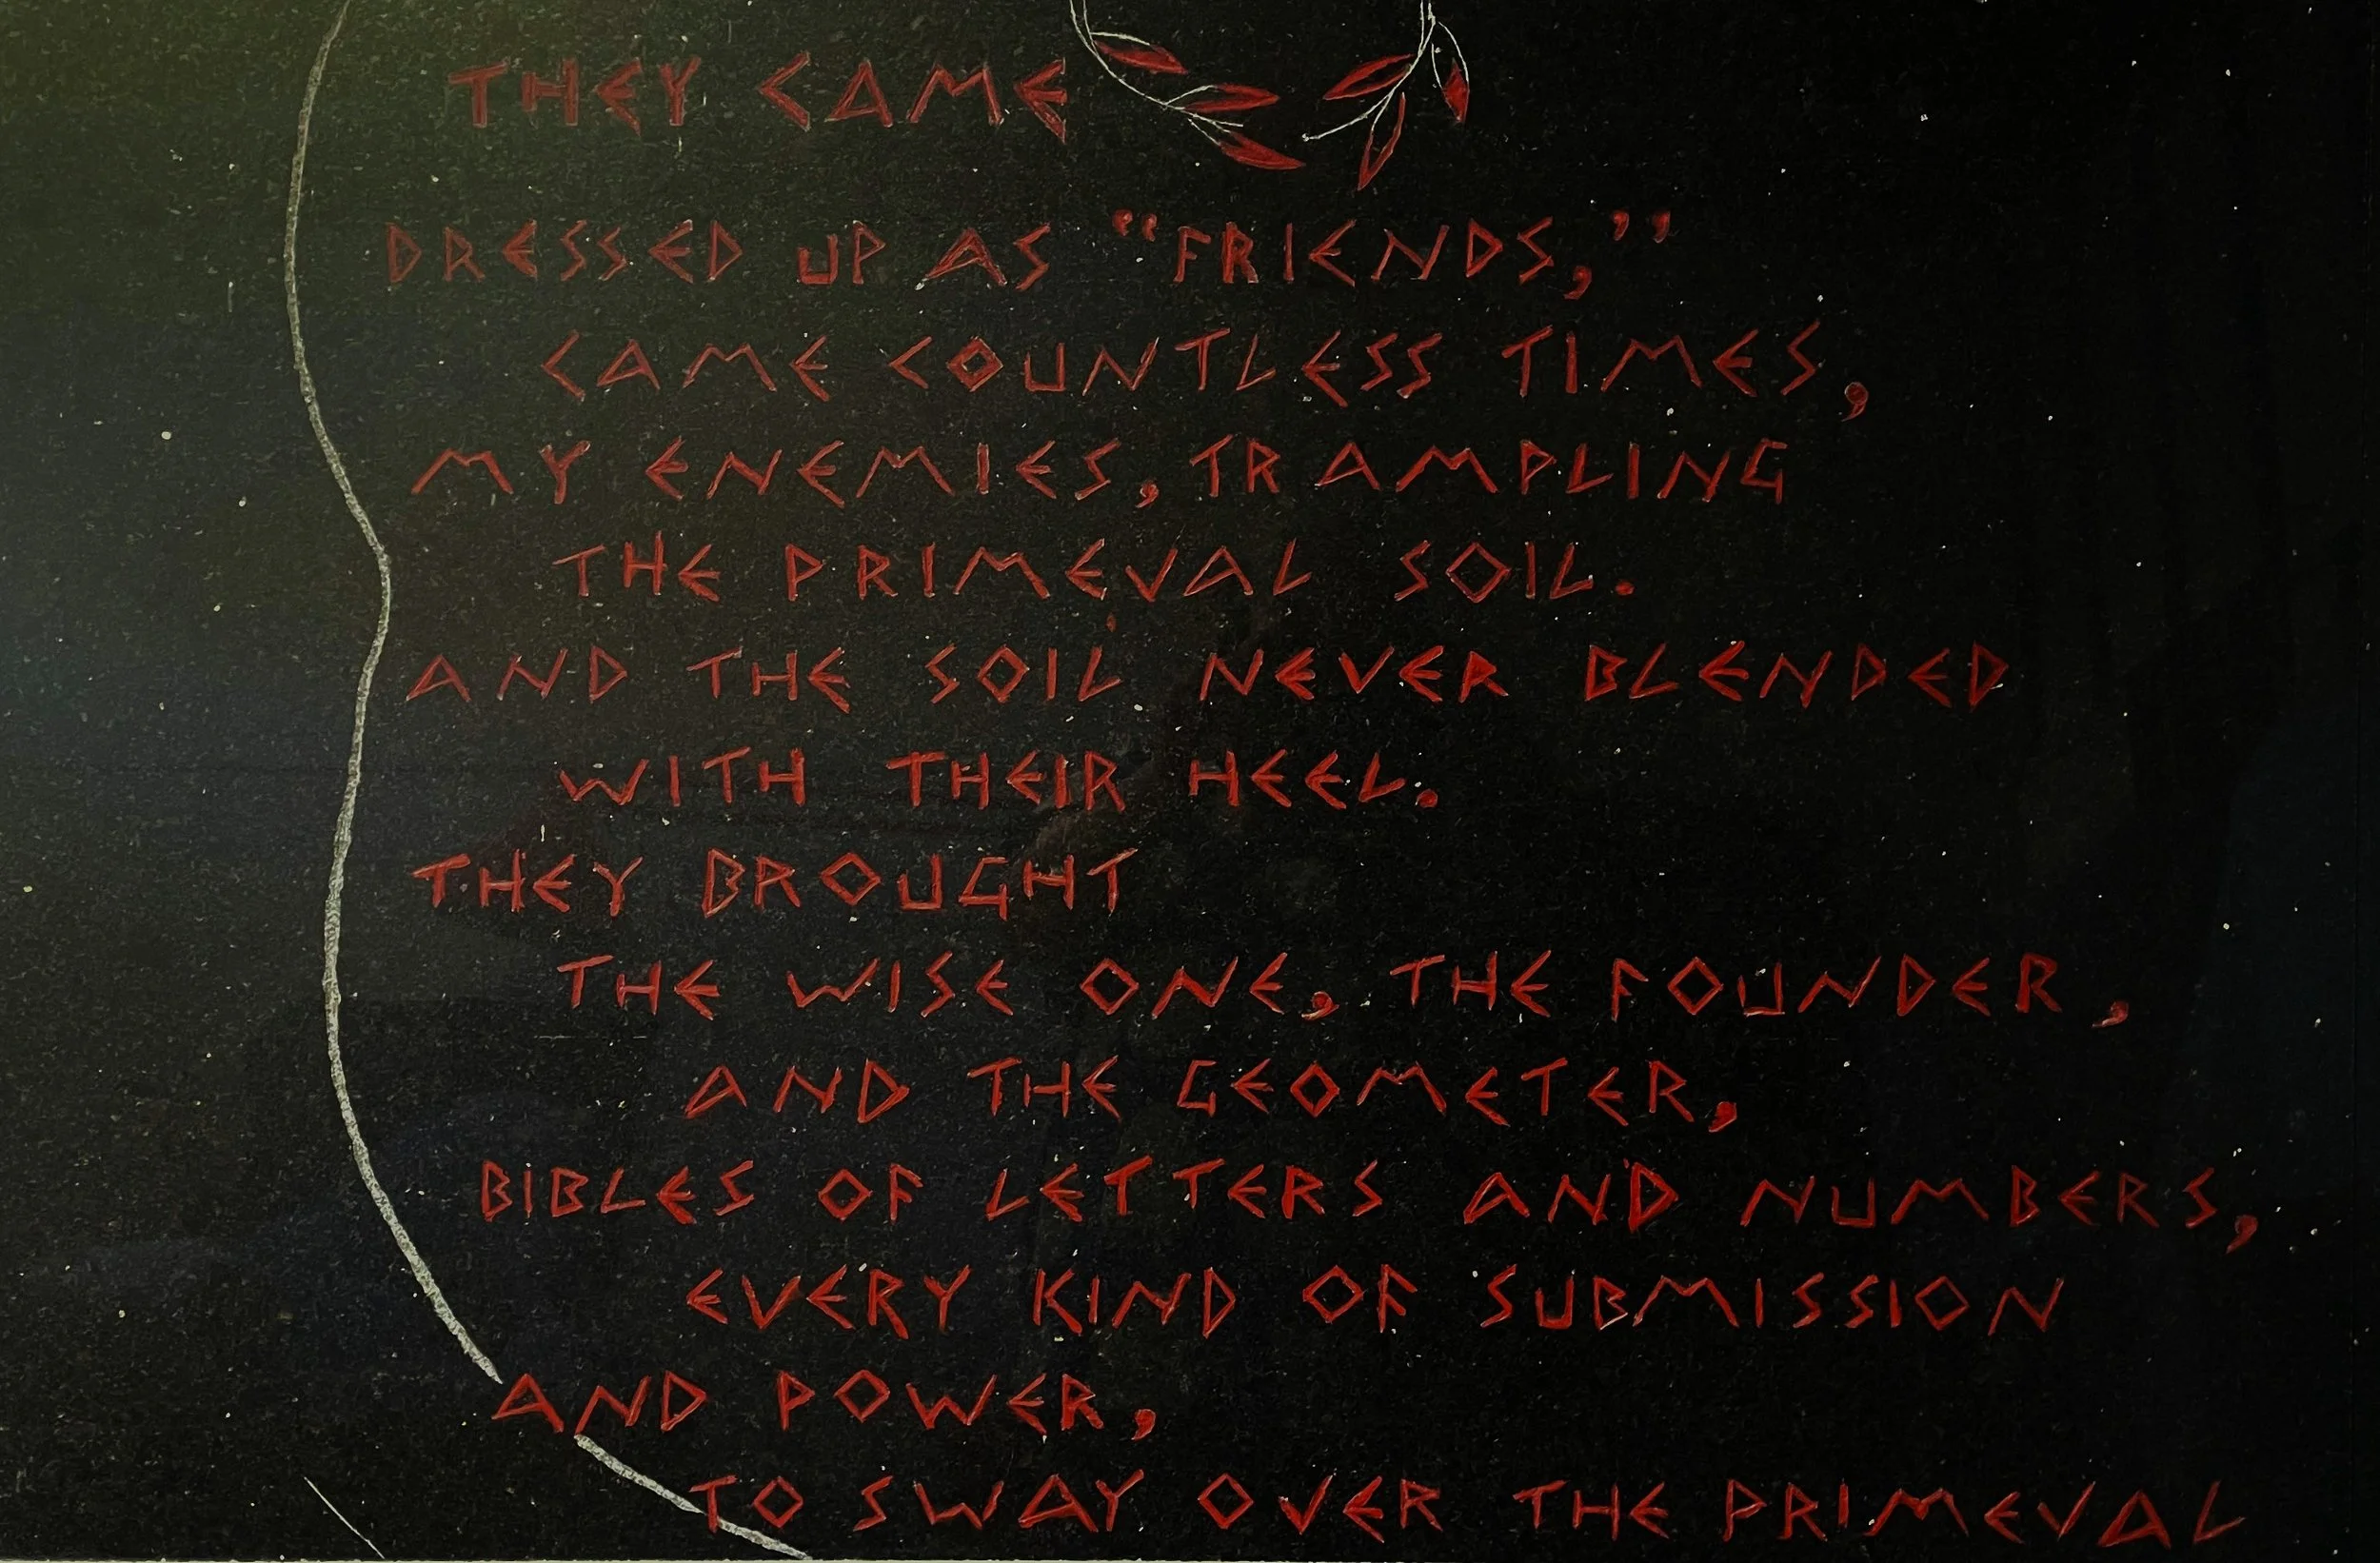 THEY CAME
DRESSED UP AS “FRIENDS,”
CAME COUNTLESS TIMES,
MY ENEMIES, TRAMPLING
THE PRIMEVAL SOIL.
AND THE SOIL NEVER BLENDED
WITH THEIR HEEL.
THEY BROUGHT
THE WISE ONE, THE FOUNDER,
AND THE GEOMETER,
BIBLES OF LETTERS AND NUMBERS,
EVERY KIND OF SUBMISSION
AND POWER,
TO SWAY OVER THE PRIMEVAL